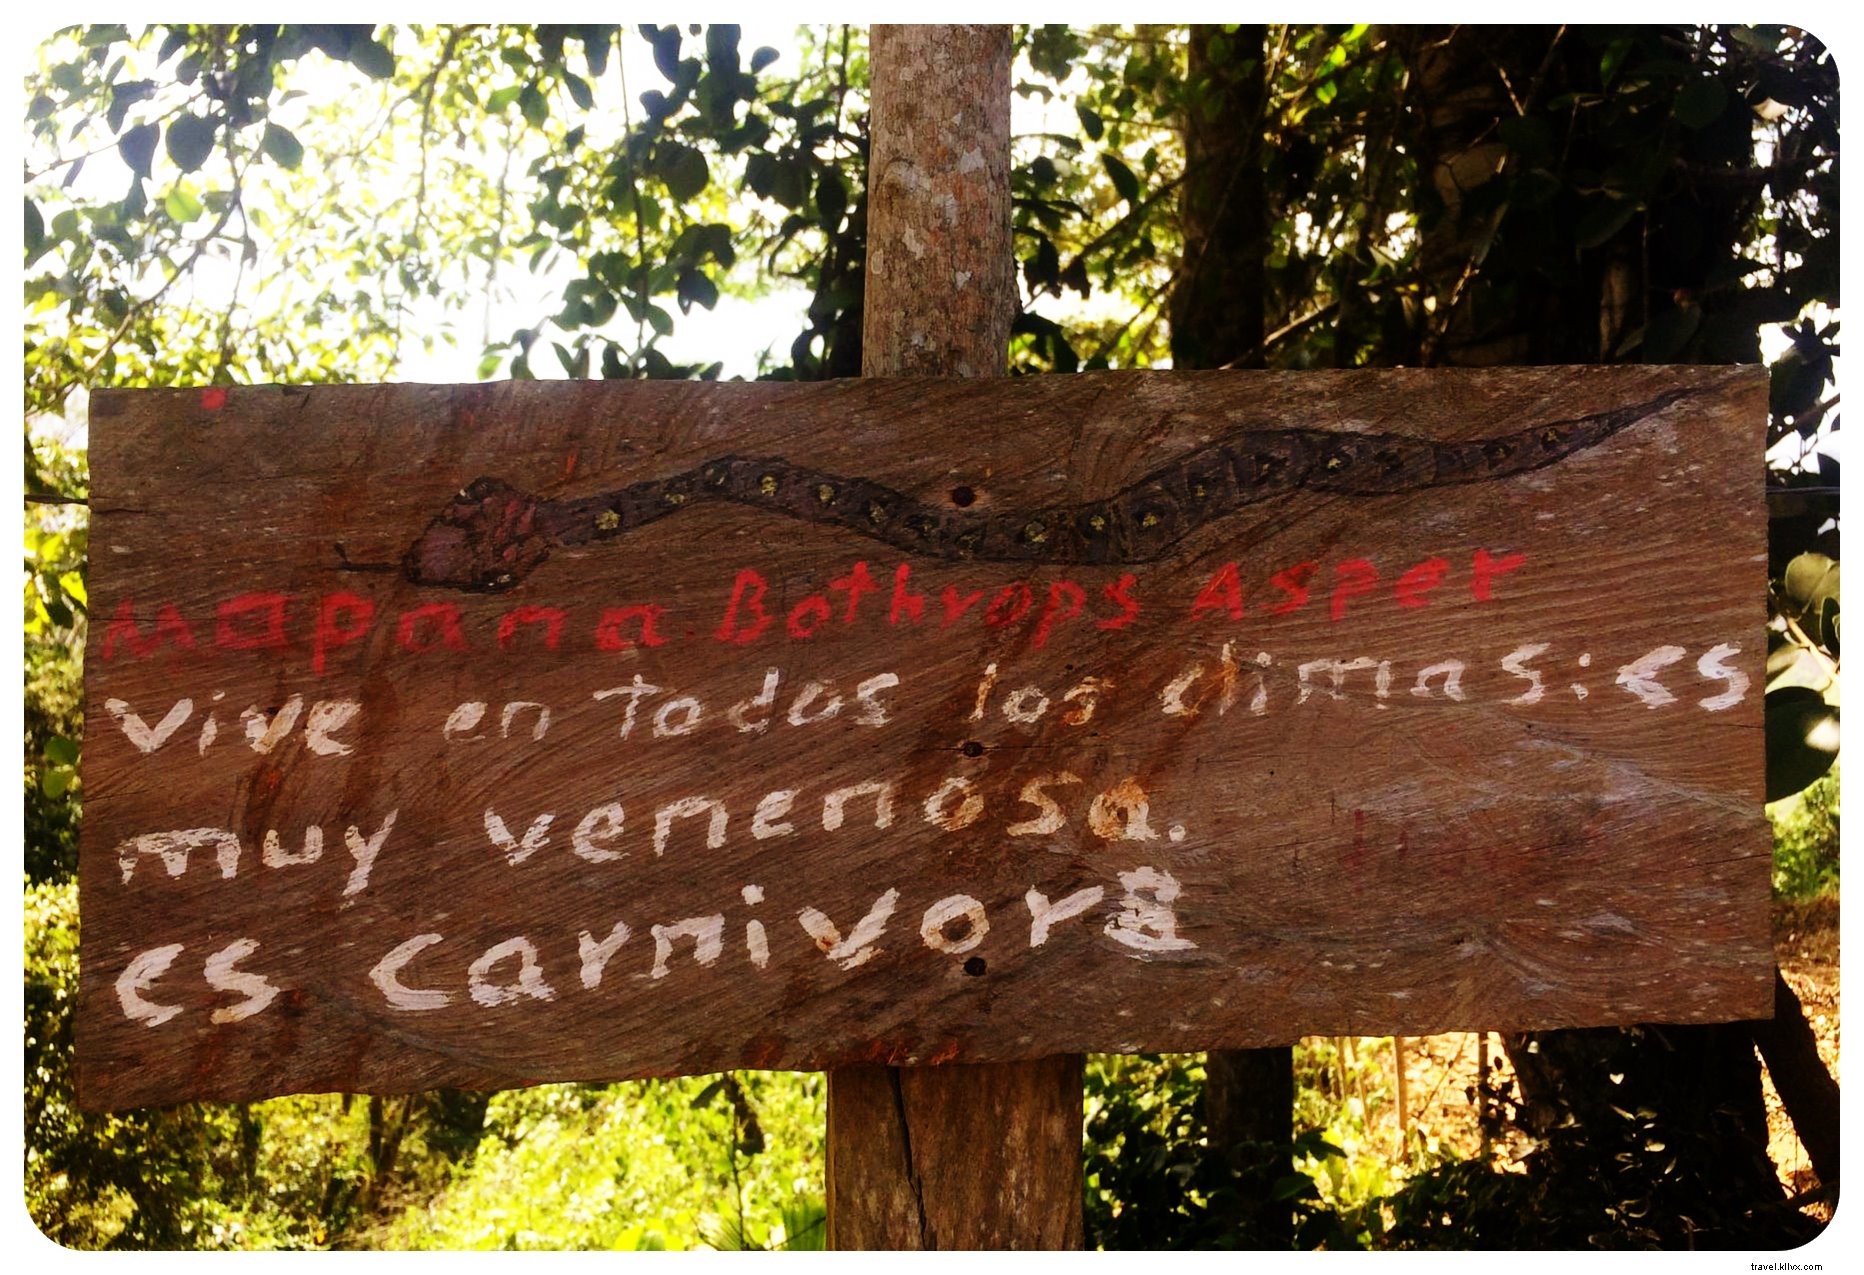 Mapana Bothrops Asper
Vive en Todas los climas: es
muy venenosa.
es carnivora
travel.kllvx.com